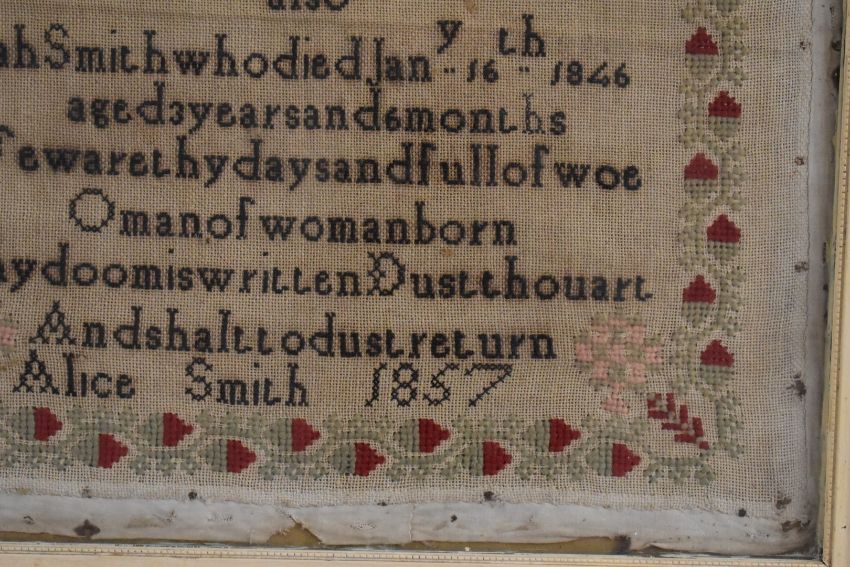 also
ahSmithwhodiedJany 16th 1846
aged3yearsand6months
Fewarethydaysandfullofwoe
Omanofwomanborn
hydoomiswrittenDustthouart
Andshalttodustreturn
Alice Smith 1857